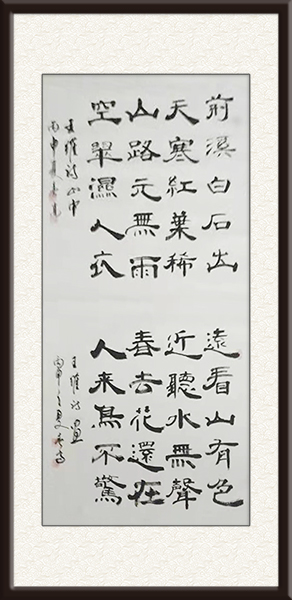 荊溪白石出
天寒紅葉稀
山路元無雨
空翠濕人衣
王維詩山中
丙申夏
遠看山有色
近聽水無聲
春去花還在
人來鳥不驚
王維詩畫
丙申之夏